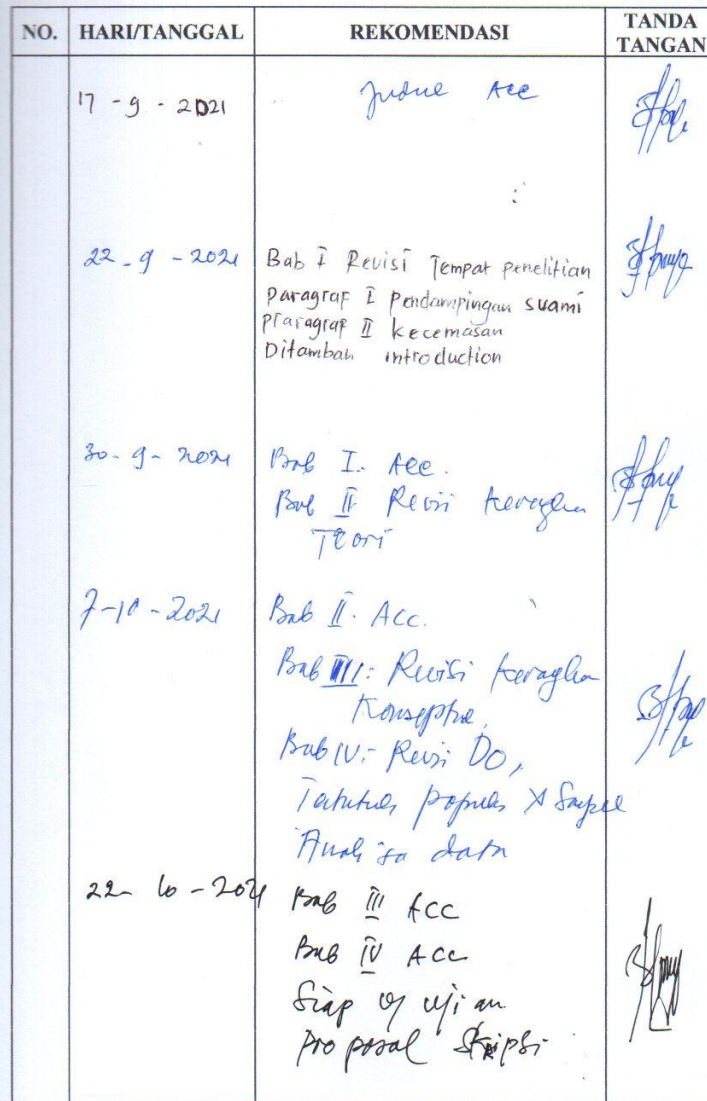 NO. HARI/TANGGAL REKOMENDASI TANDA TANGAN
17 - 9 - 2021 Judul Acc
22 - 9 - 2021 Bab I Revisi Tempat penelitian
paragraf I pendampingan suami
paragraf II kecemasan
Ditambah introduction
30 - 9 - 2021 Bab I. Acc.
Bab II Revisi kerangka
Teori
7 - 10 - 2021 Bab II. Acc.
Bab III: Revisi kerangka
Konseptual
Bab IV: Revisi DO,
populasi & Sampel
Analisa data
22 - 10 - 2021 Bab III ACC
Bab IV ACC
Siap ujian
proposal Skripsi